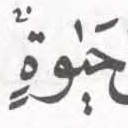 حَيٰوةٍ ۛۚ